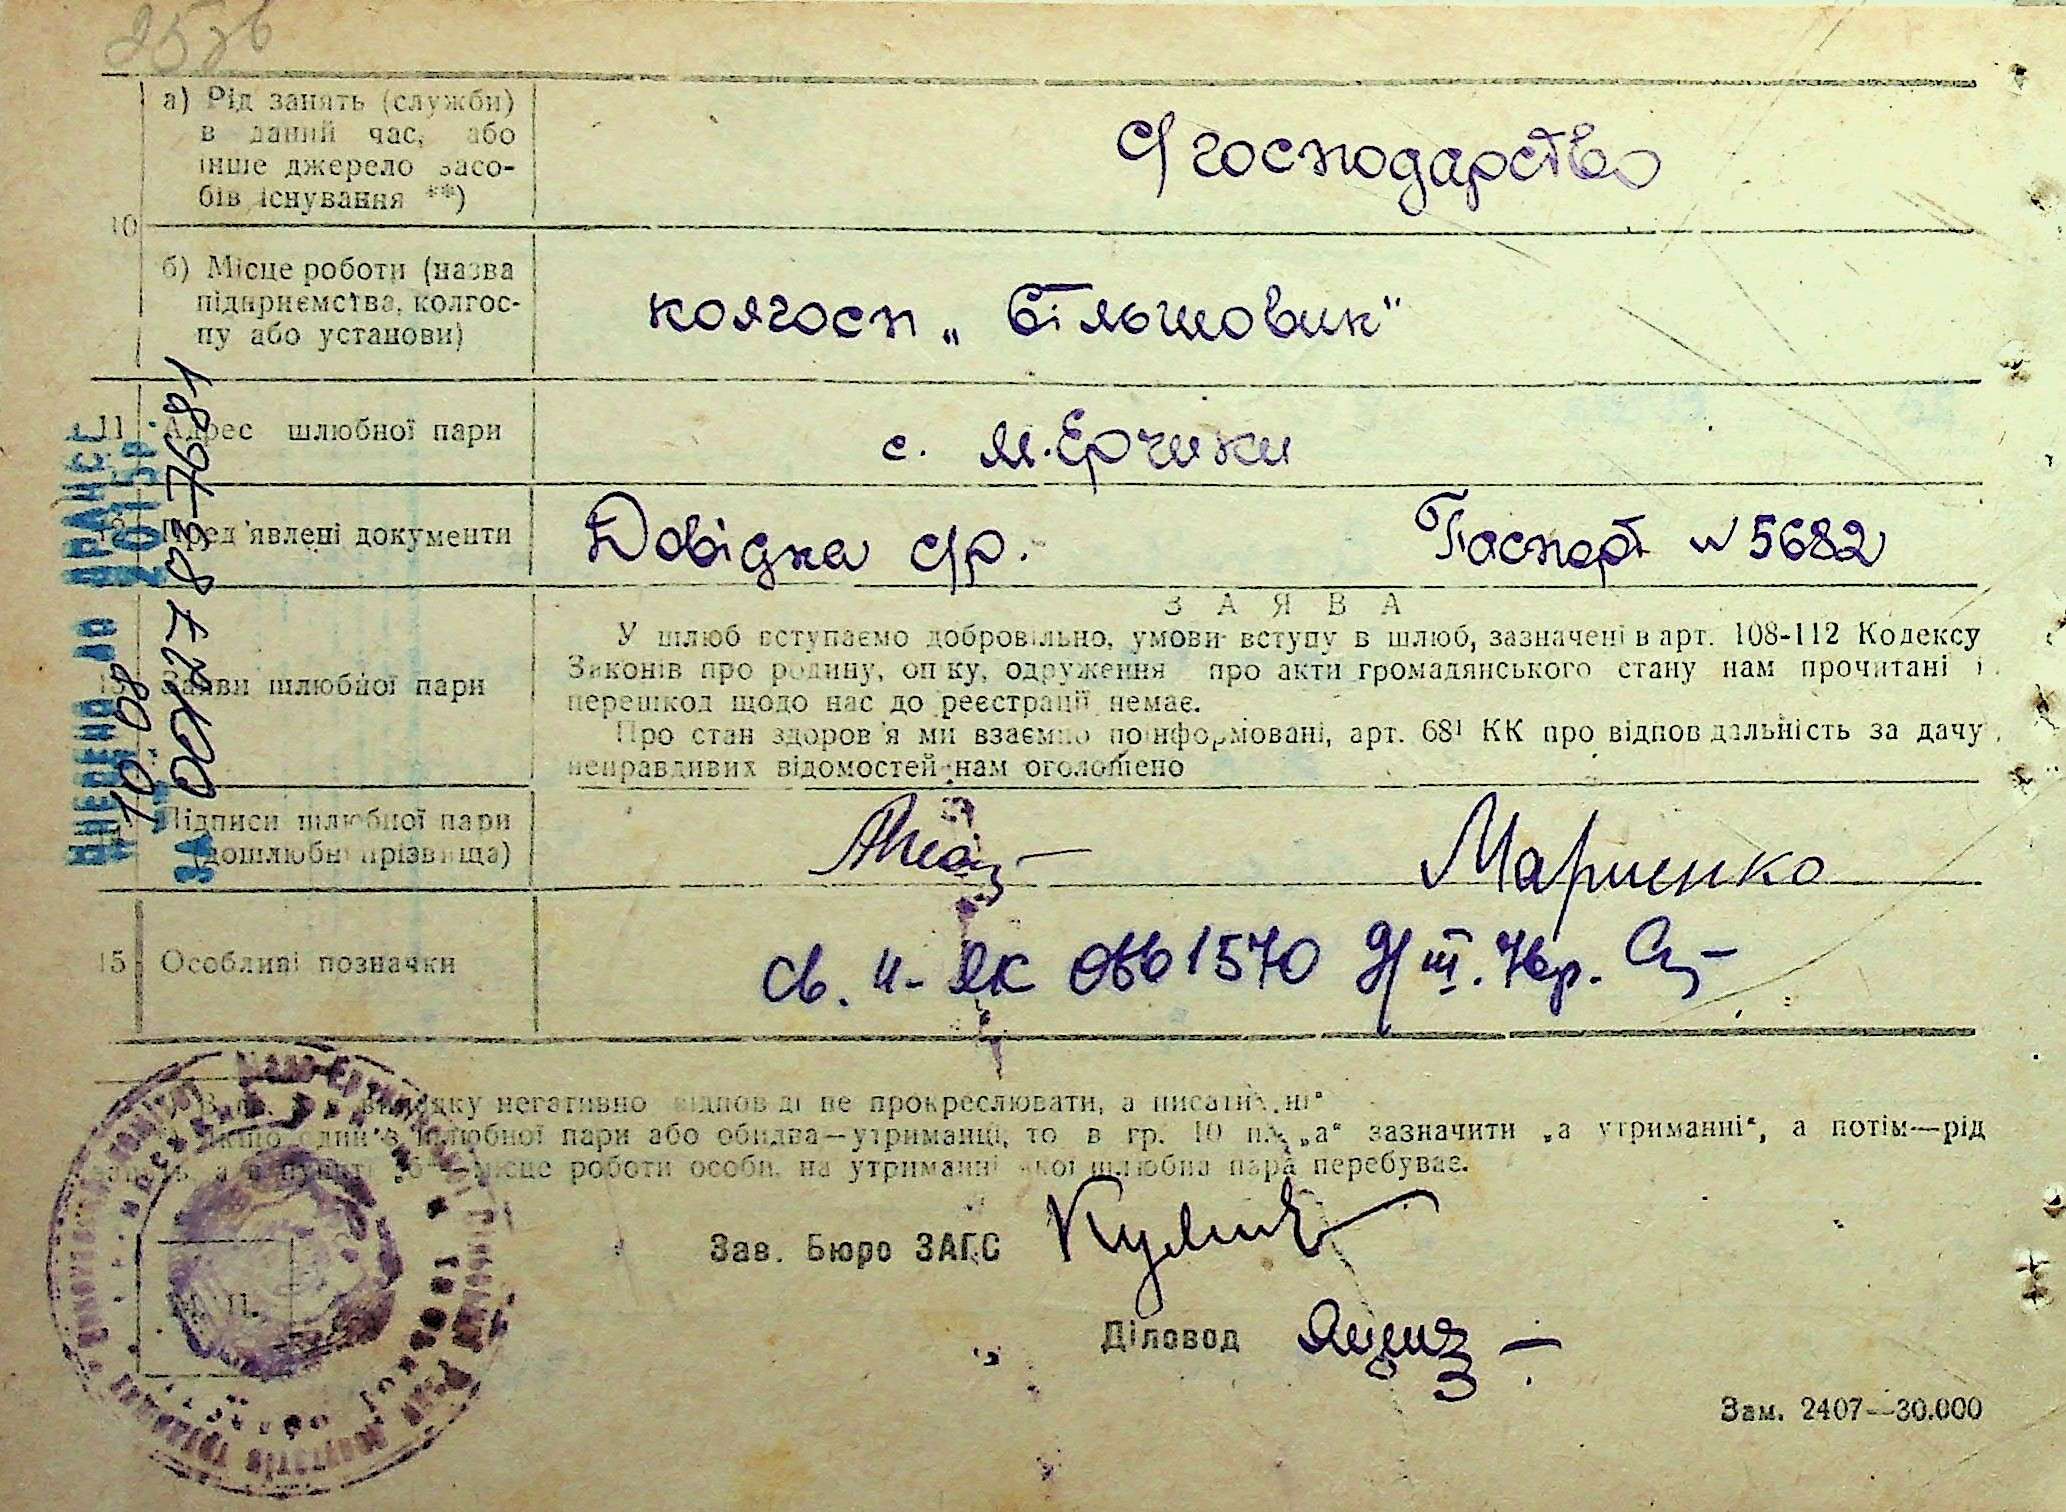 а) Рід занять (служби)
в даний час, або
інше джерело засо-
бів існування **)
С/господарство
10
б) Місце роботи (назва
підприємства, колгос-
пу або установи)
колгосп „Більшовик"
11 Адрес шлюбної пари
с. М.Ерчики
12 Пред'явлені документи
Довідка с/р.
Паспорт № 5682
13 Заяви шлюбної пари
ЗАЯВА
У шлюб вступаємо добровільно, умови вступу в шлюб, зазначені в арт. 108-112 Кодексу
Законів про родину, опіку, одруження про акти громадянського стану нам прочитані і
перешкод щодо нас до реєстрації немає.
Про стан здоров'я ми взаємно поінформовані, арт. 68¹ КК про відповідальність за дачу
неправдивих відомостей нам оголошено
Підписи шлюбної пари
(дошлюбні прізвища)
Марценко
15 Особливі позначки
св. ІІ-ЯК 0601570
ВНЕСЕНО ДО ДРАЦСГ
10 08 2015р.
ЗА 001278837681
в випадку негативно відповіді не прокреслювати, а писати „ні"
Якщо один з шлюбної пари або обидва—утриманці, то в гр. 10 п. „а" зазначити „а утриманні", а потім—рід
місце роботи особи, на утриманні якої шлюбна пара перебуває.
Зав. Бюро ЗАГС
Діловод
М. П.
Зам. 2407—30.000